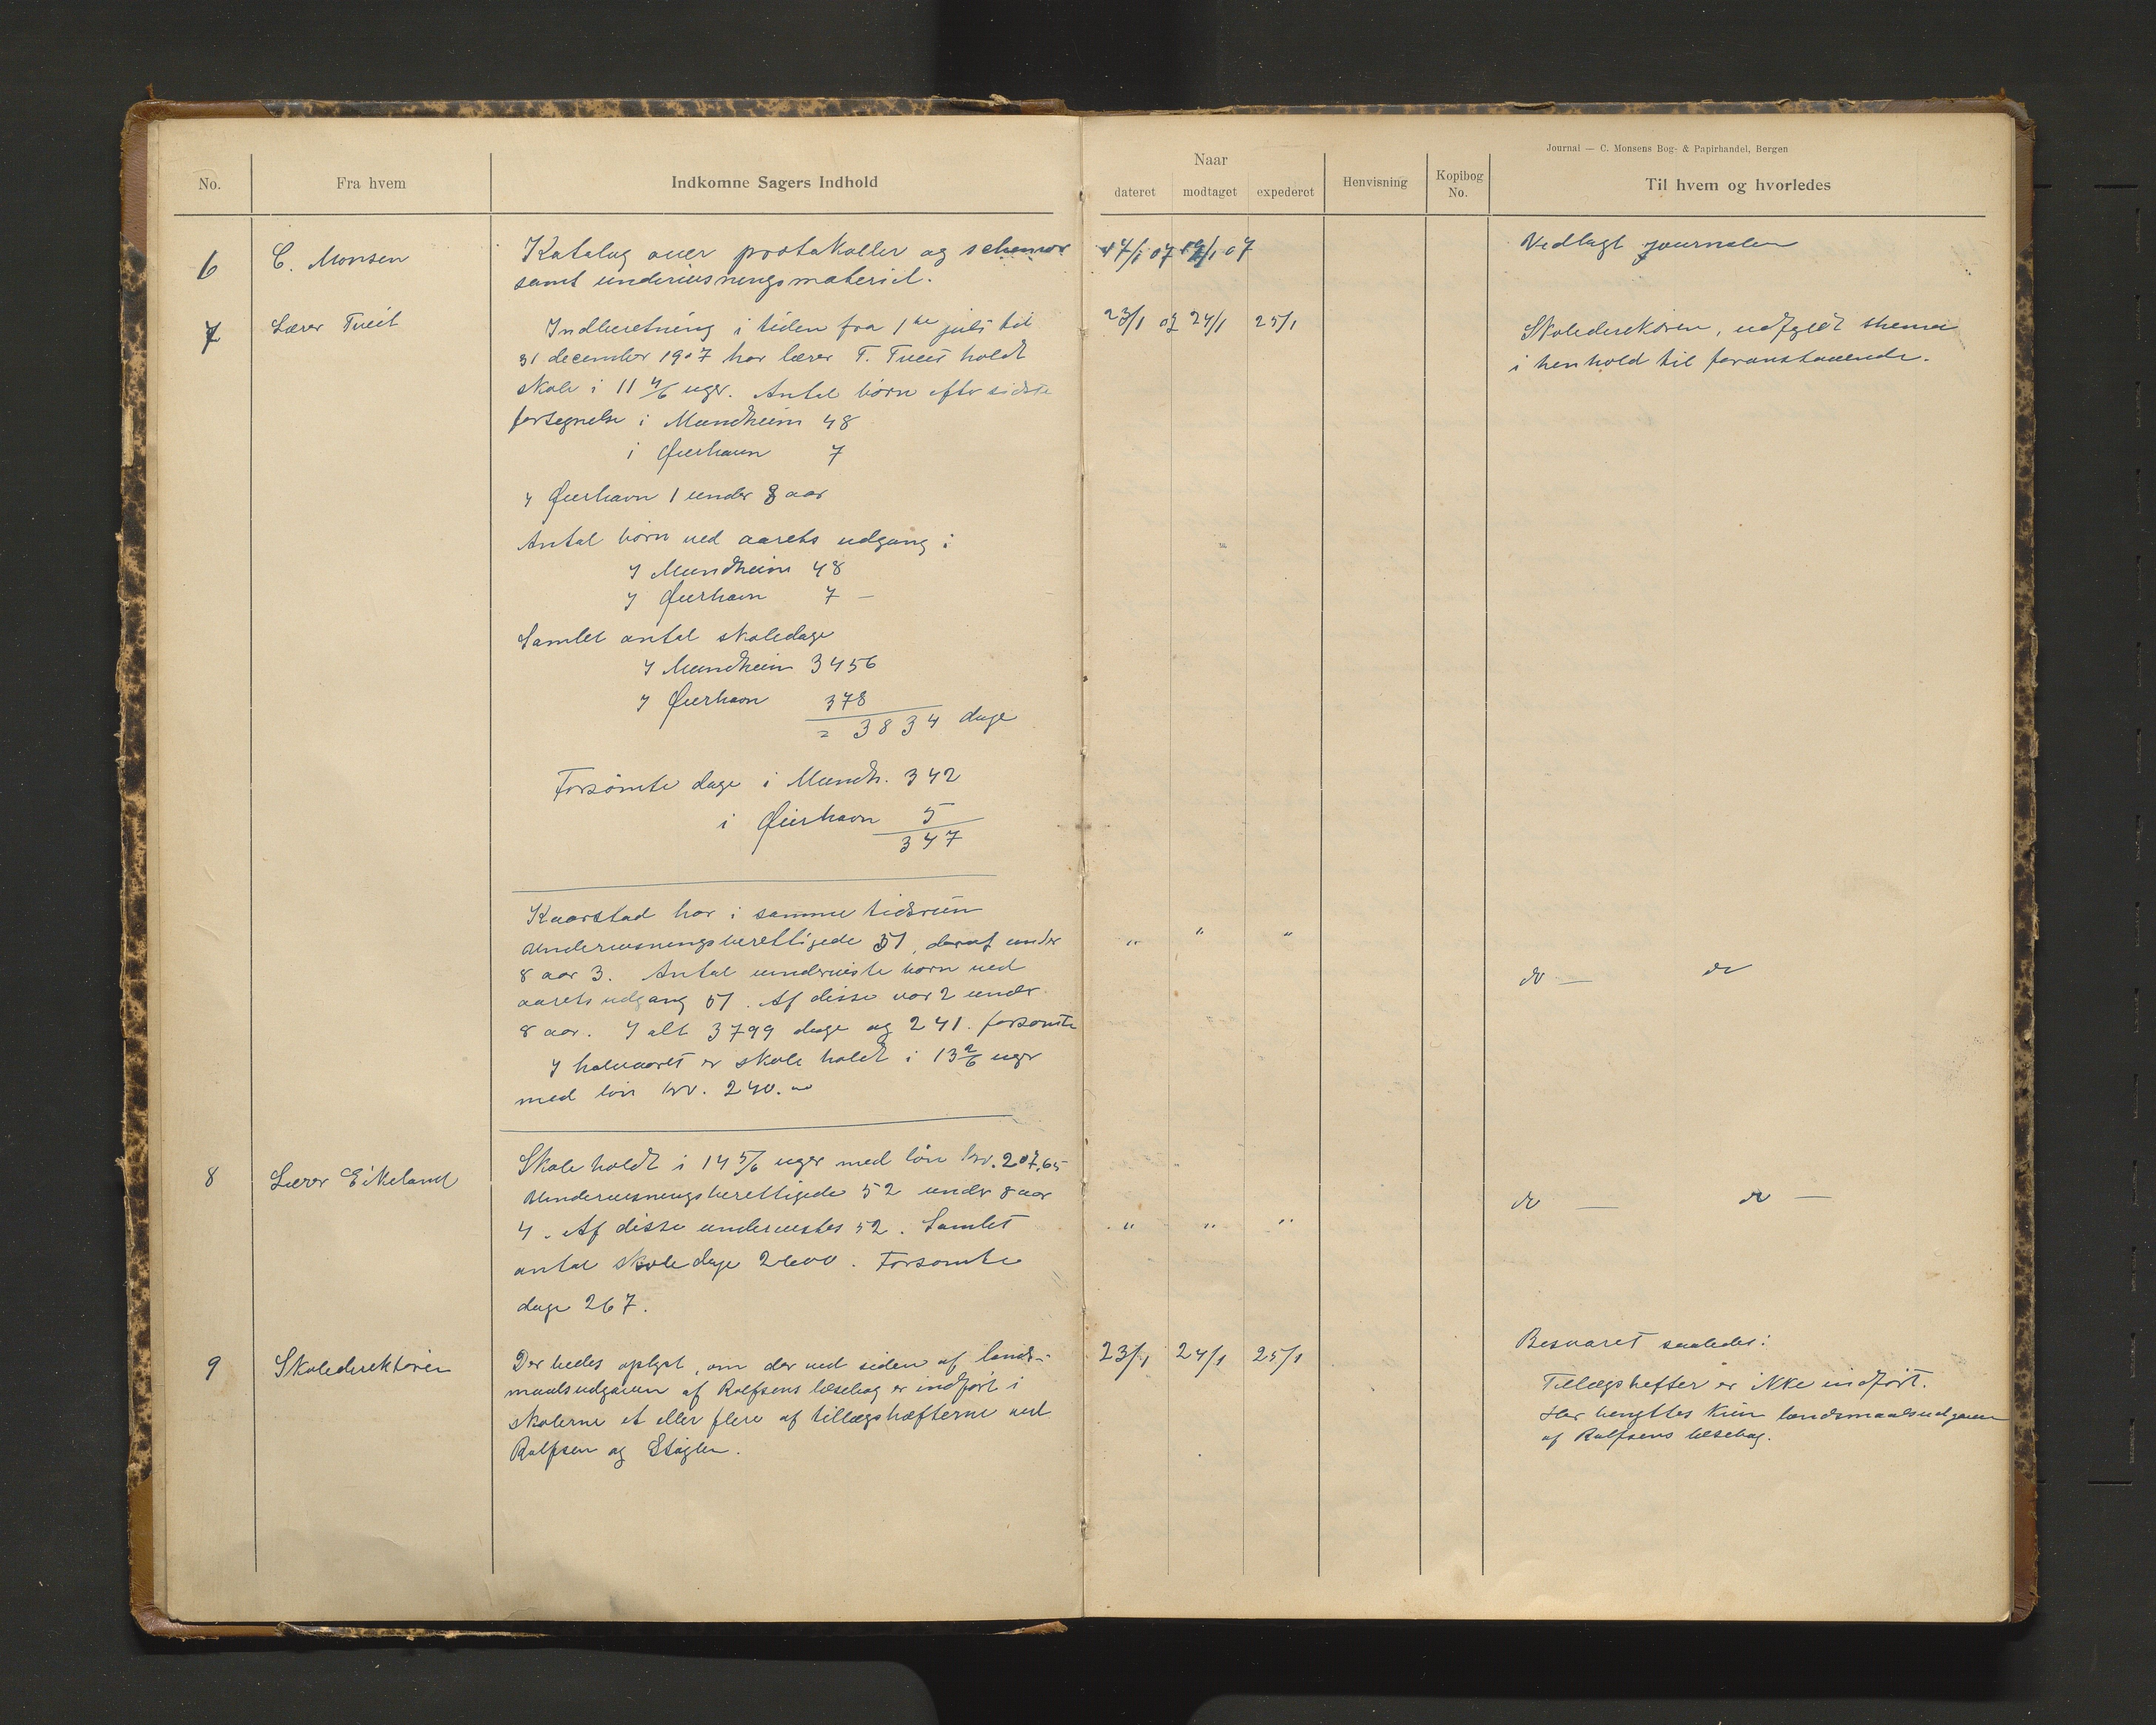 Journal — C. Monsens Bog- & Papirhandel, Bergen
No. Fra hvem Indkomne Sagers Indhold
Naar
dateret modtaget expederet Henvisning Kopibog No. Til hvem og hvorledes
6 C. Monsen Katalog over protokoller og schemaer 17/1 07 19/1 07 Vedlagt journalen
samt undervisningsmateriel.
7 Lærer Tveit Indberetning i tiden fra 1ste juli til 23/1 07 24/1 25/1 Skoledirektøren, udfyldt skema
31 december 1907 har lærer T. Tveit holdt i henhold til foranstaaende.
skole i 11 4/6 uger. Antal børn efter sidste
fortegnelse i Mundheim 48
i Øierhavn 7
I Øierhavn 1 under 8 aar
Antal børn ved aarets udgang i
I Mundheim 48
I Øierhavn 7 —
Samlet antal skoledage
I Mundheim 3456
I Øierhavn 378
= 3834 dage
Forsømte dage i Mundh. 342
i Øierhavn 5
347
Kaarstad har i samme tidsrum
undervisningsberettigede 51, deraf under " " "
8 aar 3. Antal underviste børn ved do — do
aarets udgang 51. Af disse var 2 under
8 aar. I alt 3799 dage og 241 forsømte
I halvaaret er skole holdt i 13 2/6 uger
med løn kr. 240.00
8 Lærer Eikeland Skole holdt i 14 5/6 uger med løn kr. 207,65
Undervisningsberettigede 52 under 8 aar do — do —
4. Af disse undervistes 52. Samlet " " "
antal skoledage 2600. Forsømte
dage 267.
9 Skoledirektøren Der bedes oplyst, om der ved siden af lands- 23/1 24/1 25/1 Besvaret saaledes:
maalsudgaven af Rolfsens læsebog er indført i Tillægshefter er ikke indført.
skolerne et eller flere af tillægshæfterne ved Her benyttes kun landsmaalsudgaven
Rolfsen og af Rolfsens læsebog.